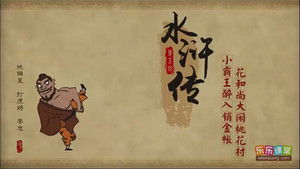 花和尚大闹桃花村
小霸王醉入销金帐
水浒传
地僻星
打虎将
李忠
乐乐课堂
leleketang.com